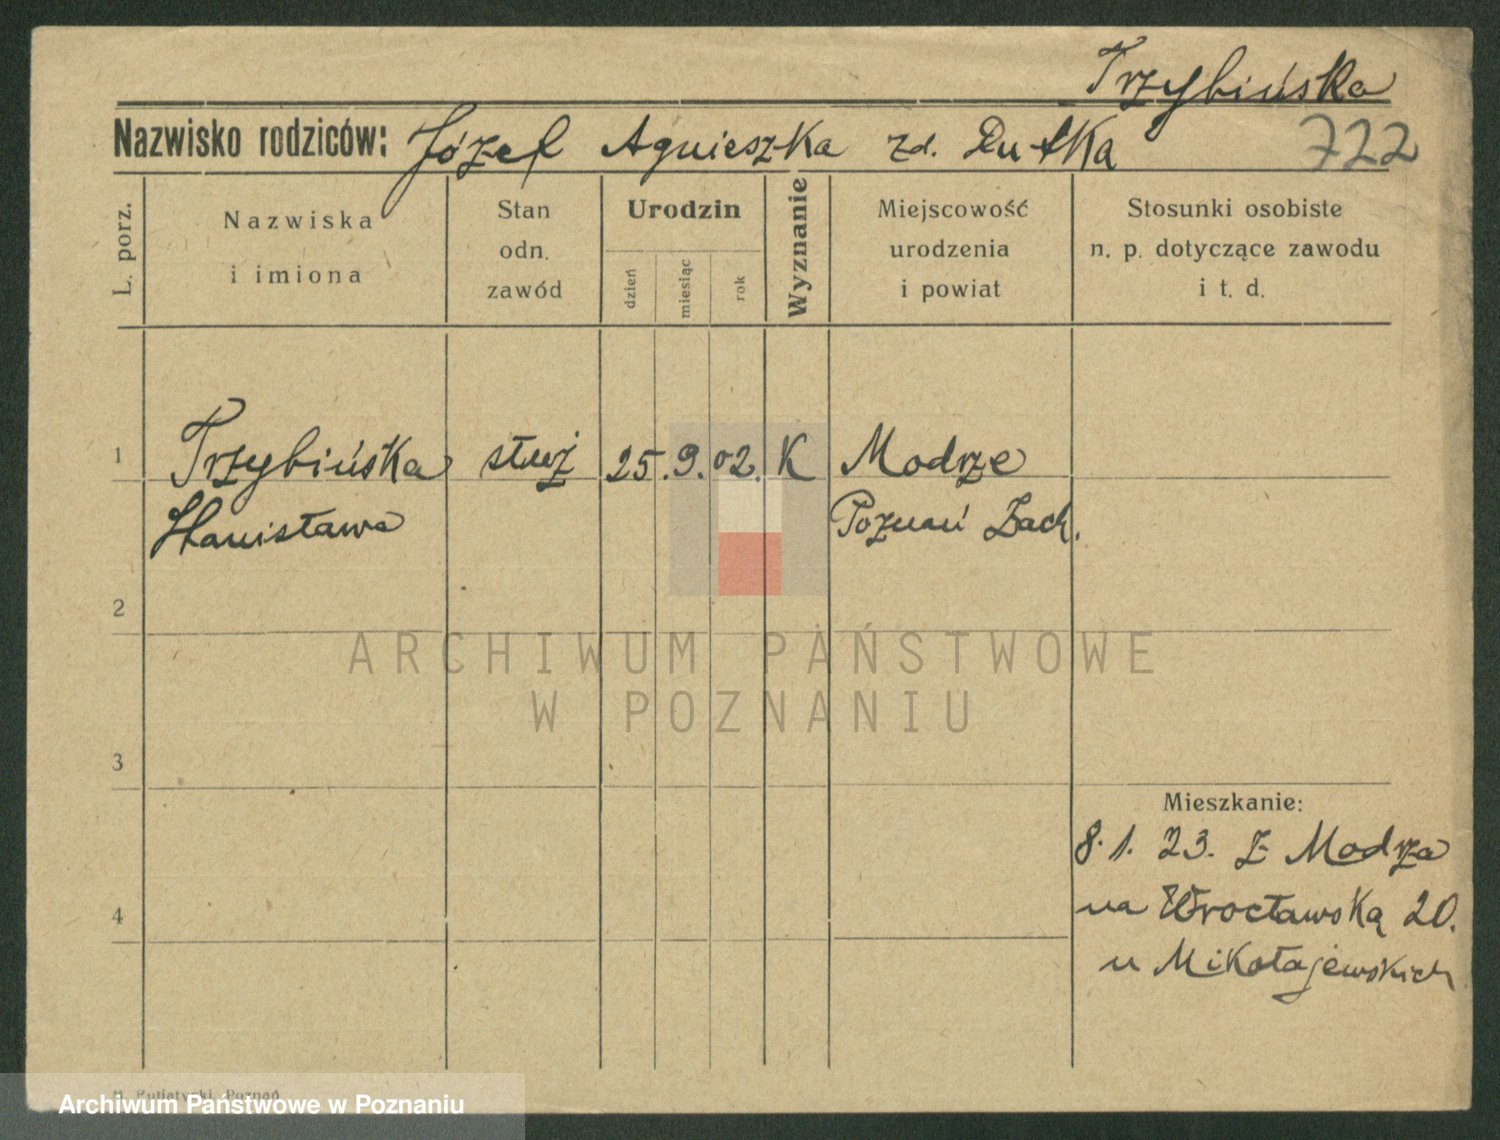 Trzybińska
Nazwisko rodziców: Józef Agnieszka zd. Dutka
722
L. porz.
Nazwiska
i imiona
Stan
odn.
zawód
Urodzin
dzień
miesiąc
rok
Wyznanie
Miejscowość
urodzenia
i powiat
Stosunki osobiste
n. p. dotyczące zawodu
i t. d.
1 Trzybińska służ 25. 9. 02. K Modrze
Stanisława Poznań Zach.
2
ARCHIWUM PAŃSTWOWE
W POZNANIU
3
Mieszkanie:
8. 1. 23. z Modrza
na Wrocławską 20.
u Mikołajewskich
4
Poznań
Archiwum Państwowe w Poznaniu